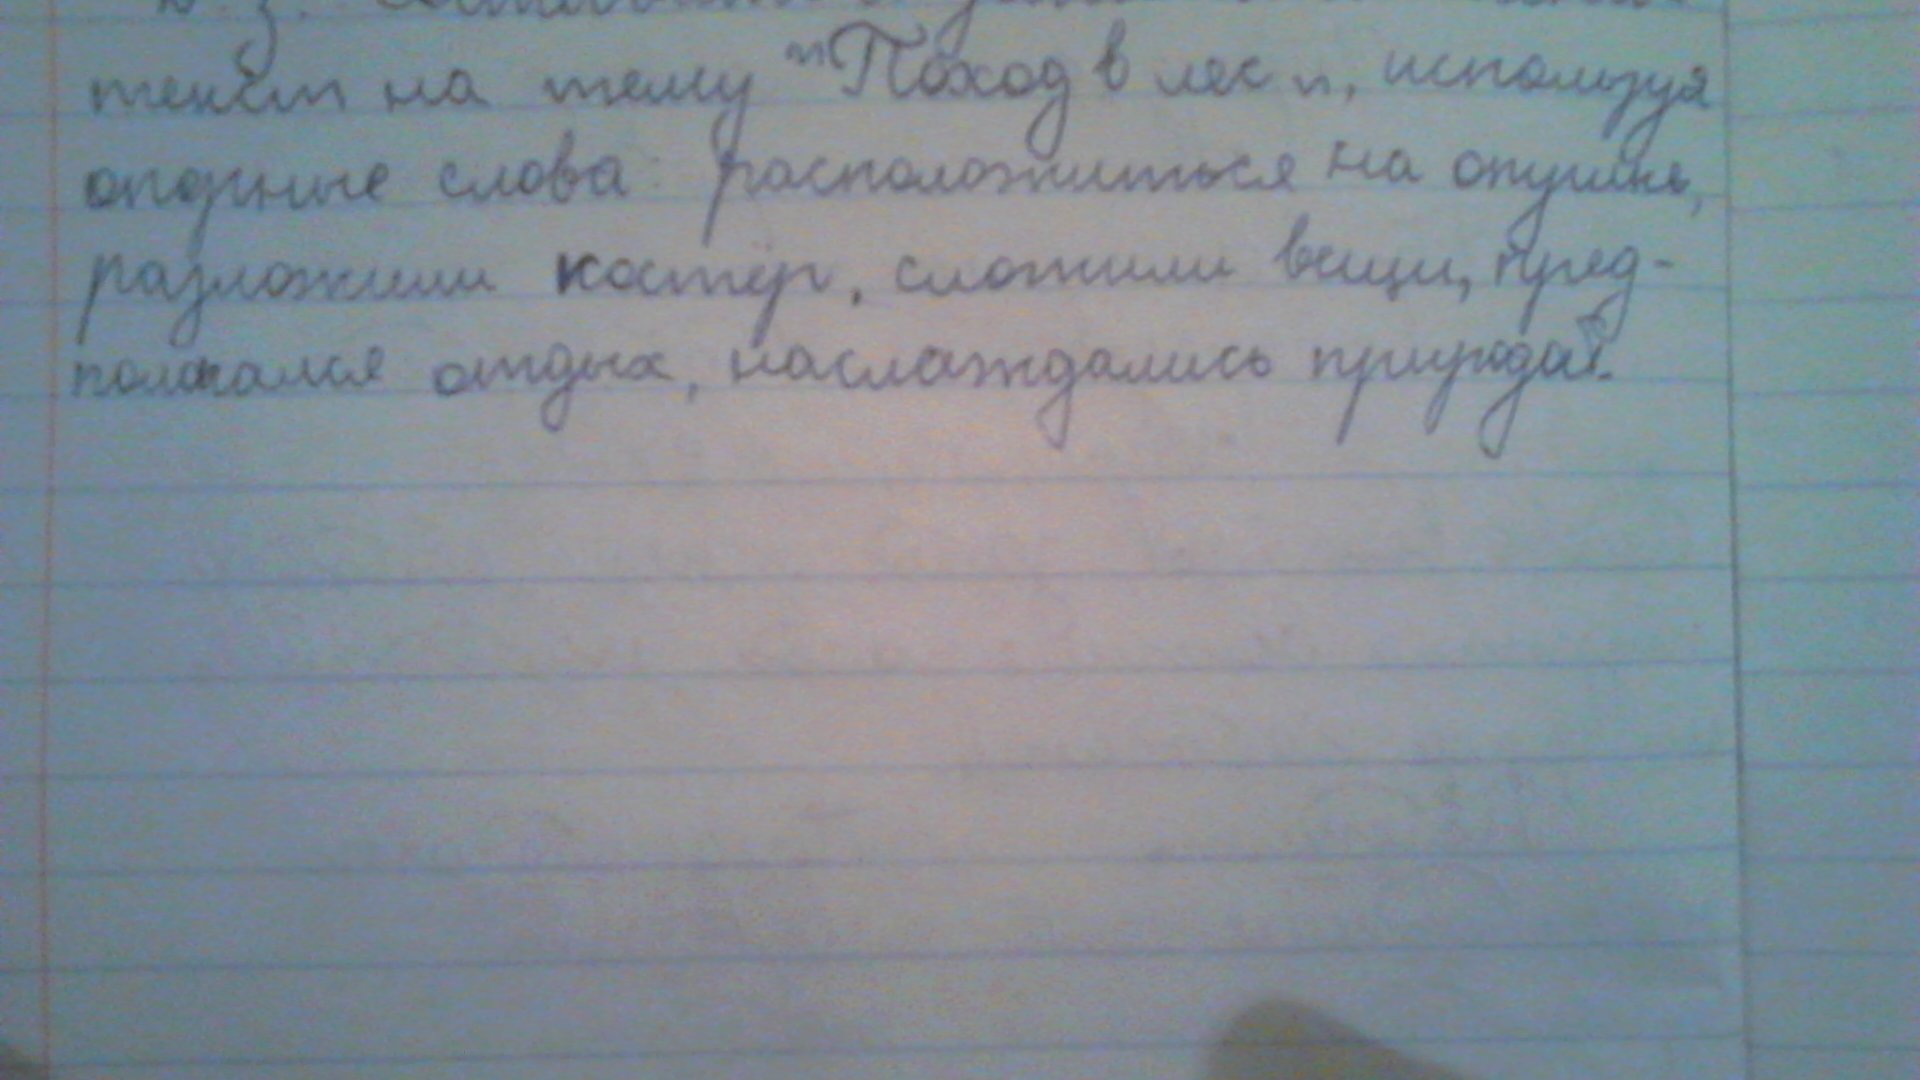 текст на тему "Поход в лес", используя
опорные слова: расположиться на опушке,
разложили костёр, сложили вещи, пред-
полагался отдых, наслаждались природой.